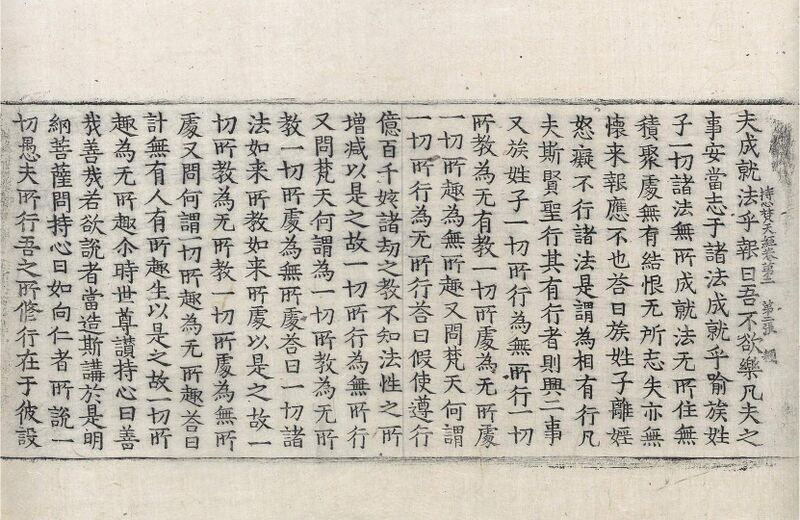 持心梵天經卷第二 第二張
夫成就法乎報曰吾不欲樂凡夫之
事安當志于諸法成就乎喻族姓
子一切諸法無所成就法无所住無
積聚處無有結恨无所志失亦無
懷来報應不也荅曰族姓子離婬
怒癡不行諸法是謂為相有行凡
夫斯賢聖行其有行者則興二事
又族姓子一切所行為無所行一切
所教為無有教一切所處為无所處
一切所趣為無所趣又問梵天何謂
一切所行為无所行荅曰假使遵行
億百千姟諸劫之教不知法性之所
增減以是之故一切所行為無所行
又問梵天何謂為一切所教為无所
教一切所處為無所處荅曰一切諸
法如来所教如来所處以是之故一
切所教為无所教一切所處為無所
處又問何謂一切所趣為无所趣荅曰
計無有人有所趣生以是之故一切所
趣為无所趣尒時世尊讃持心曰善
哉善哉若欲說者當造斯講於是明
網菩薩問持心曰如向仁者所說一
切愚夫所行吾之所修行在于彼設